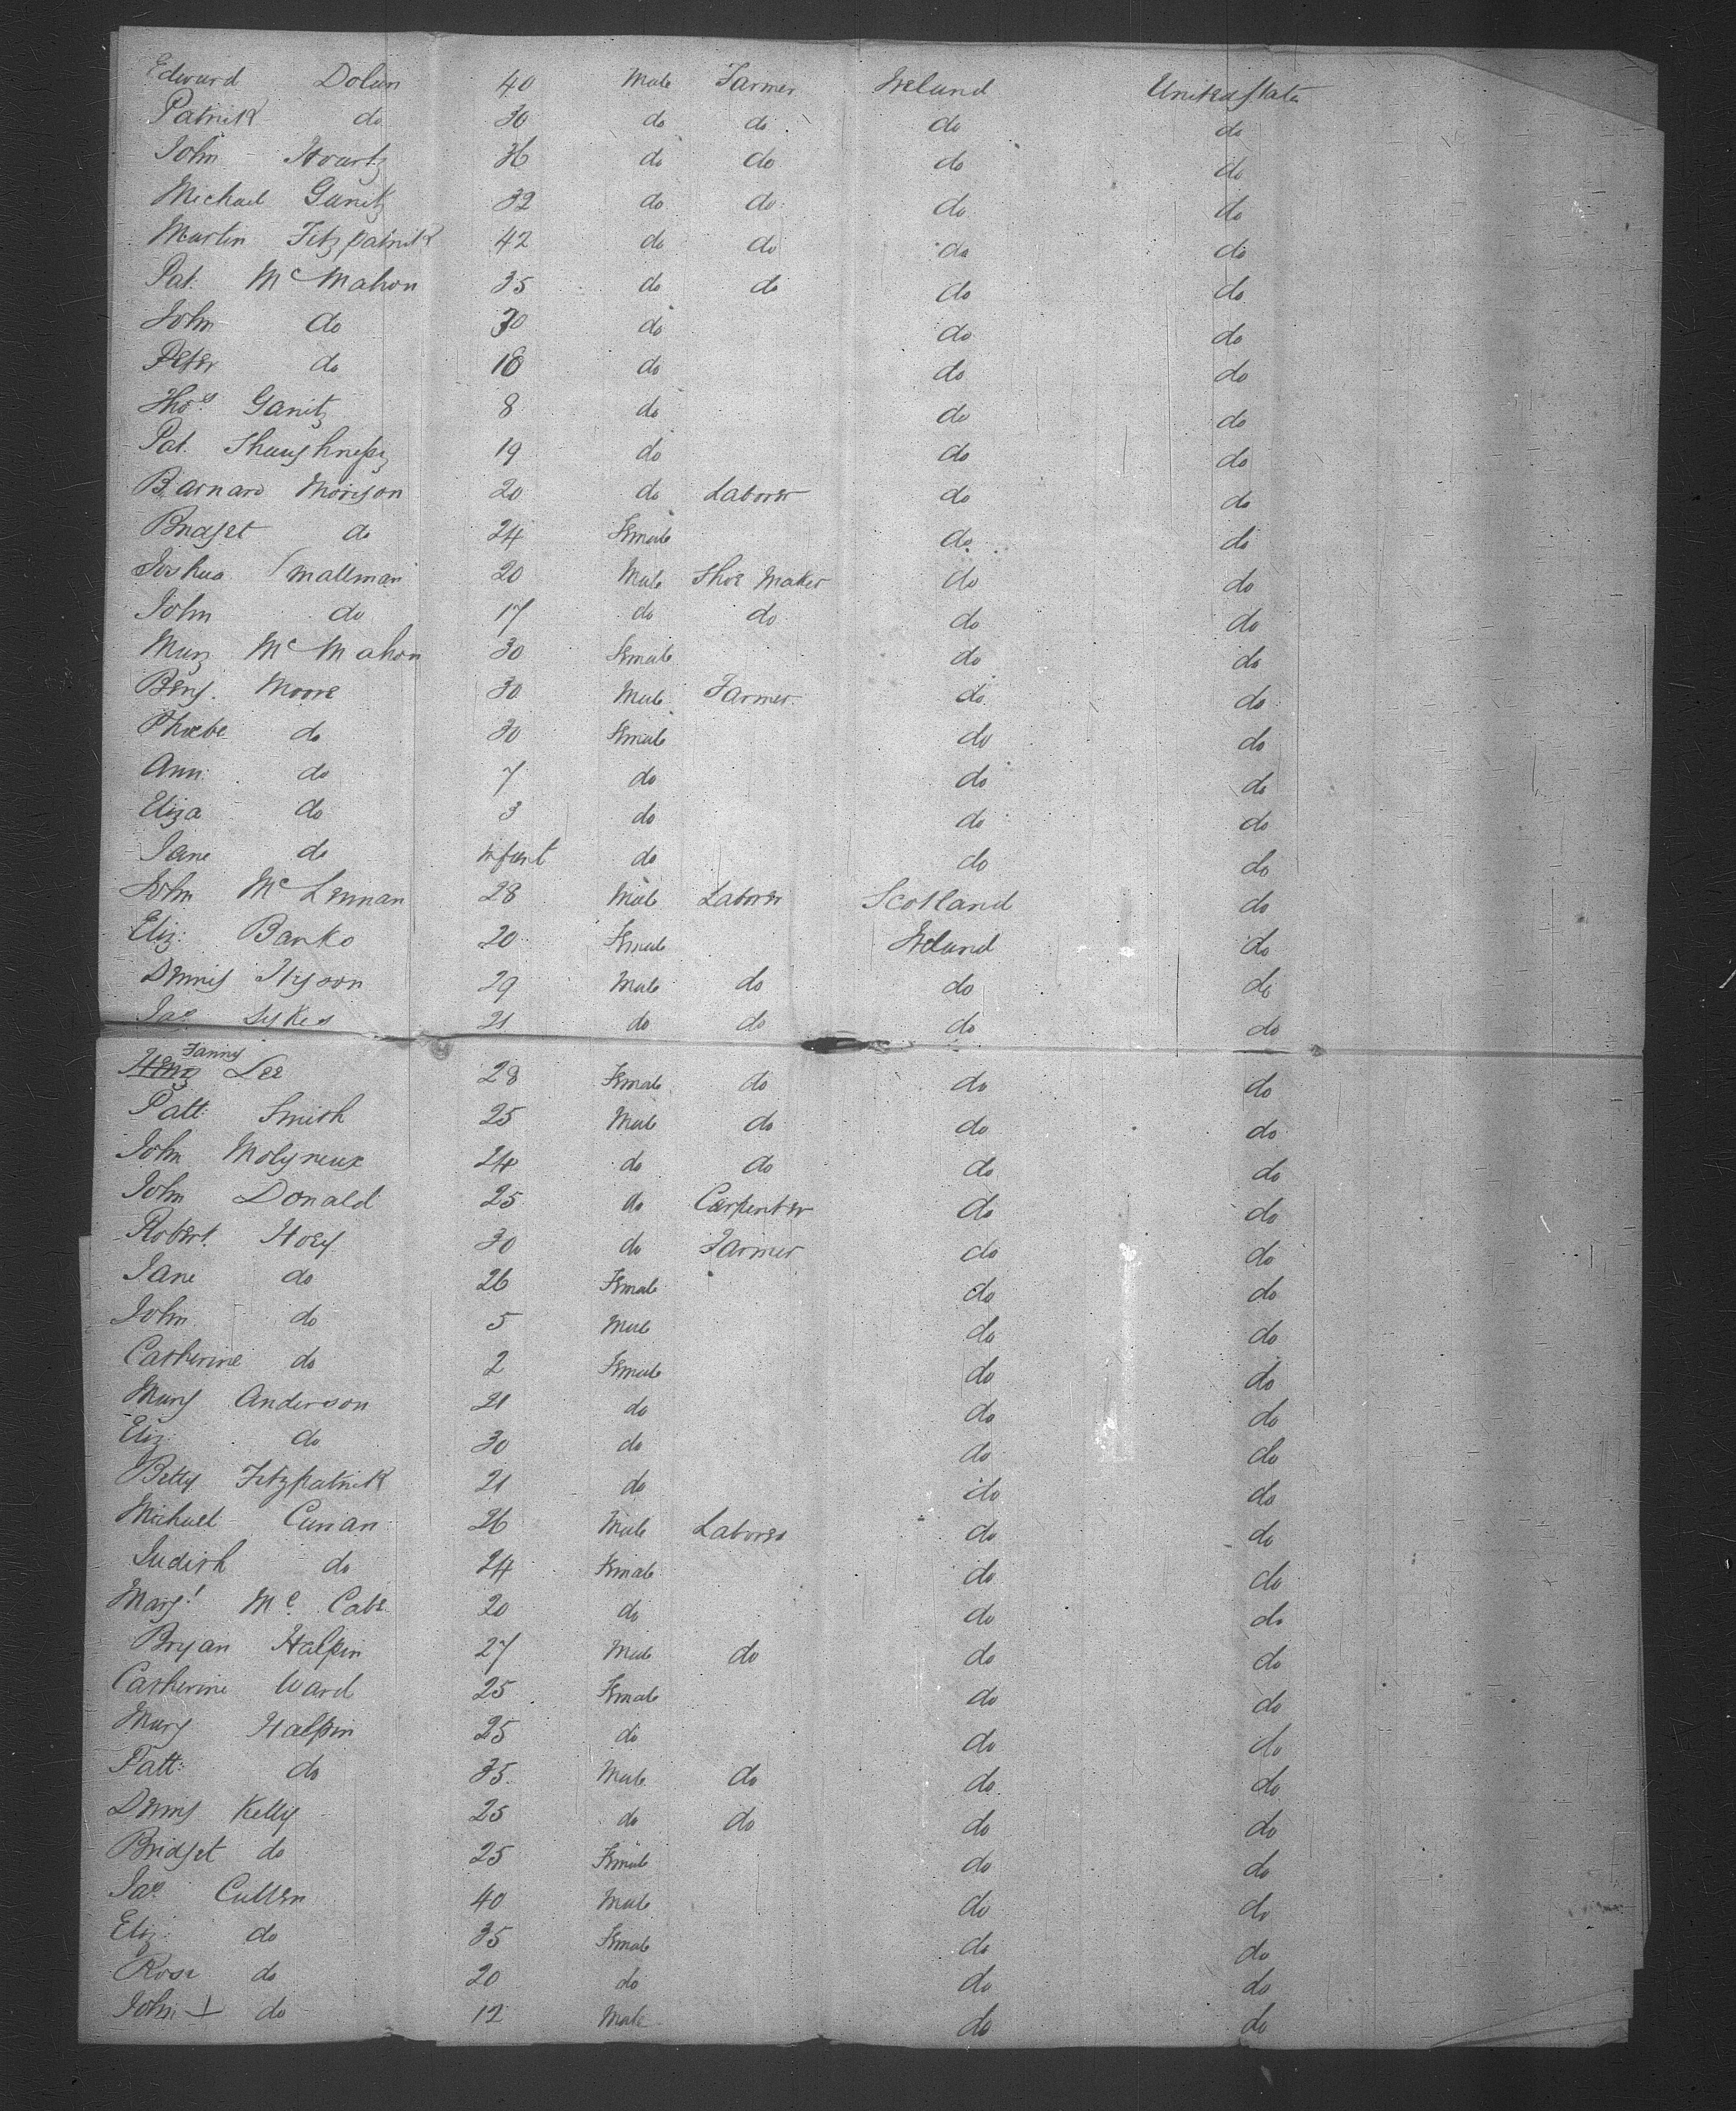 Edward Dolan 40 Male Farmer Ireland United States
Patrick do 30 do do do do
John 36 do do do do
Michael 32 do do do do
Martin Fitzpatrick 42 do do do do
Pat. Mc Mahon 35 do do do do
John do 30 do do do
Peter do 18 do do do
Thos. 8 do do do
Pat. Shaughnessy 19 do do do
Barnard Morison 20 do Laborer do do
Bridget do 24 Female do do
Joshua Smallman 20 Male Shoe Maker do do
John do 17 do do do do
Mary Mc Mahon 30 Female do do
Benj. Moore 30 Male Farmer do do
Phoebe do 30 Female do do
Ann do 7 do do do
Eliza do 3 do do do
Jane do infant do do do
John Mc Lennan 28 Male Laborer Scotland do
Eliz: Banks 20 Female Ireland do
Dennis 29 Male do do do
Jas. Sykes 21 do do do do
Fanny Lee 28 Female do do do
Patt: Smith 25 Male do do do
John Molyneux 24 do do do do
John Donald 25 do Carpenter do do
Robert Hoey 30 do Farmer do do
Jane do 26 Female do do
John do 5 Male do do
Catherine do 2 Female do do
Mary Anderson 21 do do do
Eliz: do 30 do do do
Betty Fitzpatrick 21 do do do
Michael 26 Male Laborer do do
Judith do 24 Female do do
Margt. Mc. Cabe 20 do do do
Bryan Halpin 27 Male do do do
Catherine Ward 25 Female do do
Mary Halpin 25 do do do
Patt: do 35 Male do do do
Dennis Kelly 25 do do do do
Bridget do 25 Female do do
Jas. Cullen 40 Male do do
Eliz: do 35 Female do do
Rose do 20 do do do
John do 12 Male do do